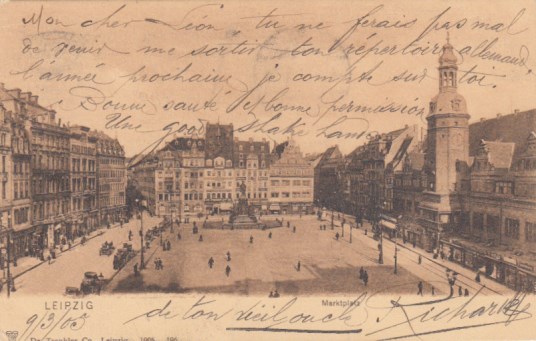 Mon cher Léon, tu ne ferais pas mal
de venir me sortir ton répertoire allemand
l'année prochaine, je compte sur toi.
Bonne santé et bonne permission
Une good shake hand
LEIPZIG
Marktplatz
9/3/03
de ton vieil oncle Richard
Dr. Trenkler Co., Leipzig. 1905